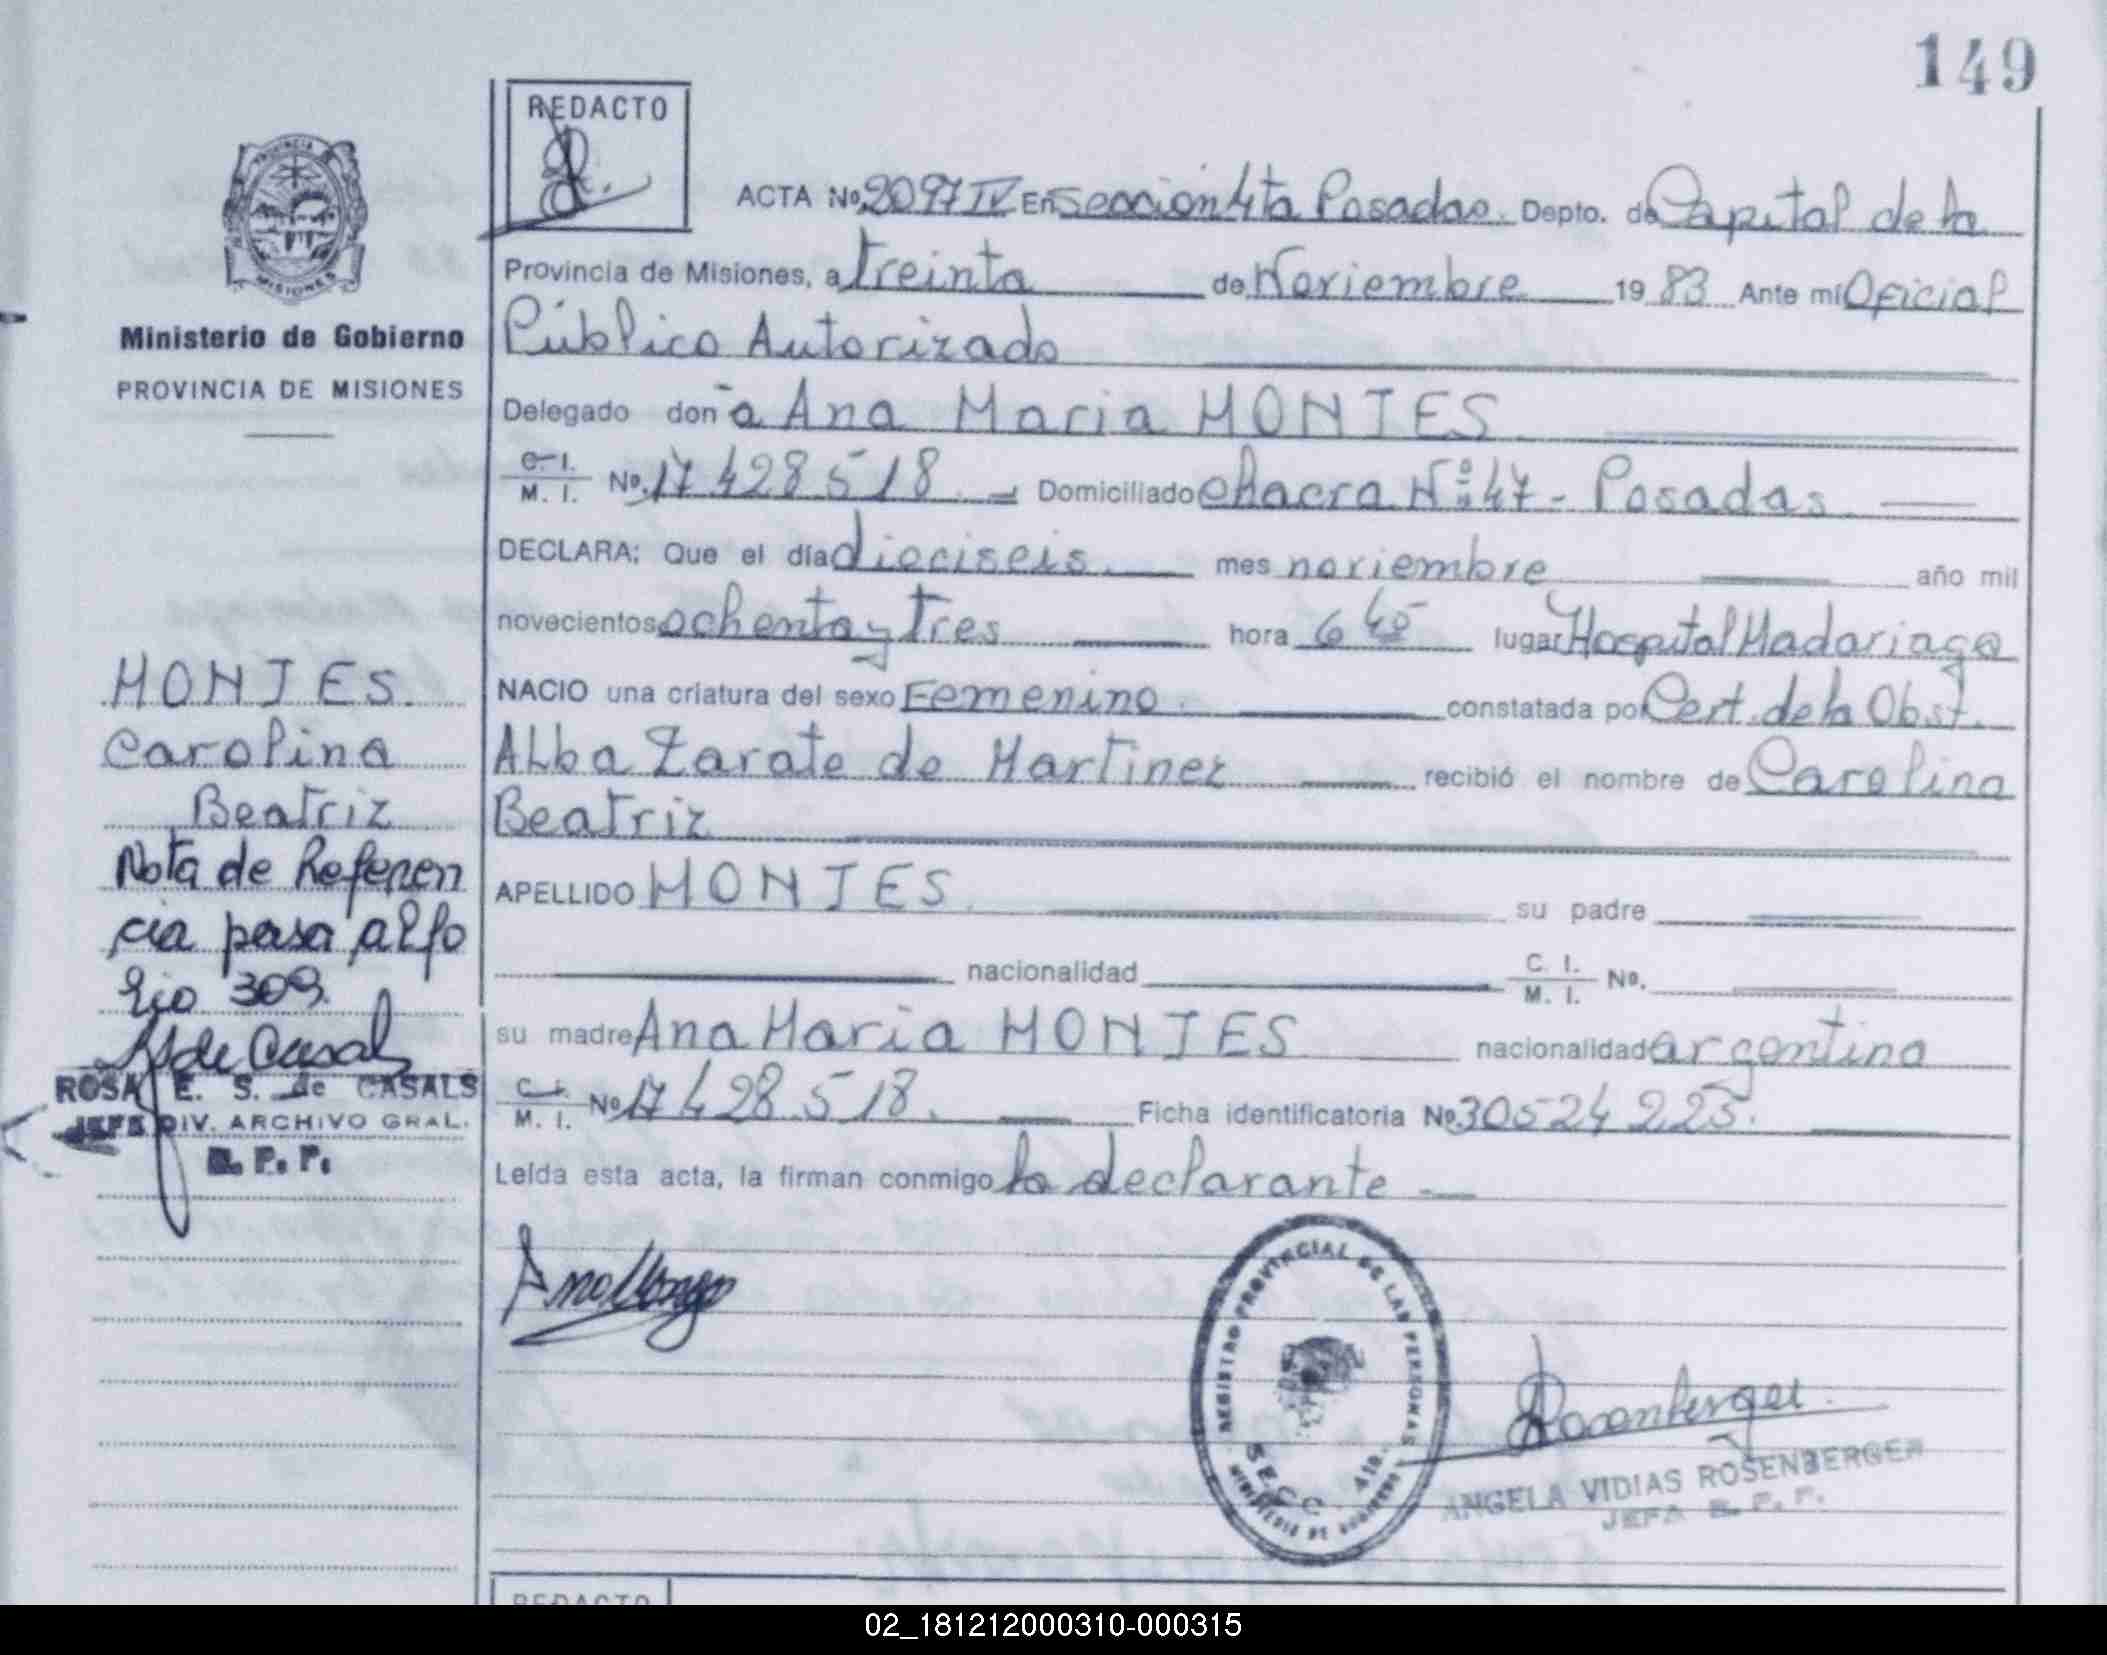 149
REDACTO
ACTA No. 2097 IV En Sección 4ta Posadas. Depto. de Capital de la
Provincia de Misiones, a treinta de Noviembre 19 83 Ante mi Oficial
Público Autorizado
Delegado don a Ana Maria MONJES
C. I. M. I. No. 17428518. Domiciliado Chacra Nº 47 - Posadas
DECLARA: Que el día dieciseis. mes noviembre año mil
novecientos ochenta y tres hora 6 45 lugar Hospital Madariaga
NACIO una criatura del sexo Femenino. constatada por Cert. de la Obst.
Alba Zarate de Martinez recibió el nombre de Carolina
Beatriz
APELLIDO MONJES su padre
nacionalidad C. I. M. I. No.
su madre Ana Maria MONJES nacionalidad argentina
C. I. M. I. No 17428518. Ficha identificatoria No 30524225.
Leída esta acta, la firman conmigo la declarante
PROVINCIA
MISIONES
Ministerio de Gobierno
PROVINCIA DE MISIONES
MONJES.
Carolina
Beatriz
Nota de Referen
cia pasa al fo
lio 309.
ROSA E. S. de CASALS
JEFE DIV. ARCHIVO GRAL.
R. P. P.
REGISTRO PROVINCIAL DE LAS PERSONAS
SECC. 4ta.
MINISTERIO DE GOBIERNO
Rosenberger
ANGELA VIDIAS ROSENBERGER
JEFA R. P. P.
REDACTO
02_181212000310-000315